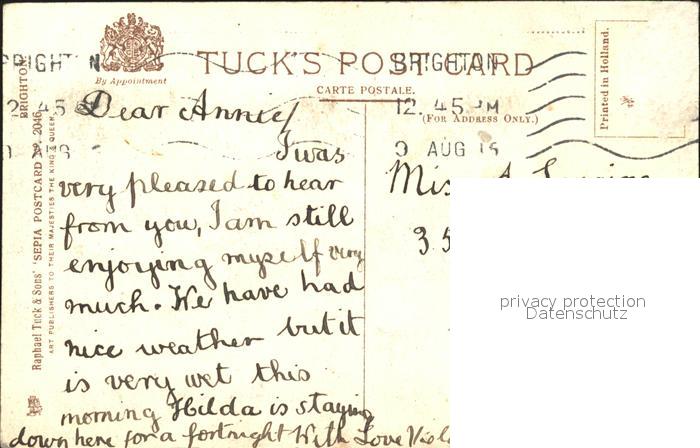 TUCK'S POST CARD
CARTE POSTALE.
By Appointment
(FOR ADDRESS ONLY.)
Printed in Holland.
BRIGHTON
12. 45 PM
9 AUG 15
Raphael Tuck & Sons' "SEPIA" POSTCARD No. 2046
BRIGHTON
ART PUBLISHERS TO THEIR MAJESTIES THE KING & QUEEN.
Dear Annie/
I was
very pleased to hear
from you, I am still
enjoying myself very
much. We have had
nice weather but it
is very wet this
morning Hilda is staying
down here for a fortnight With Love
Miss A
35
privacy protection
Datenschutz